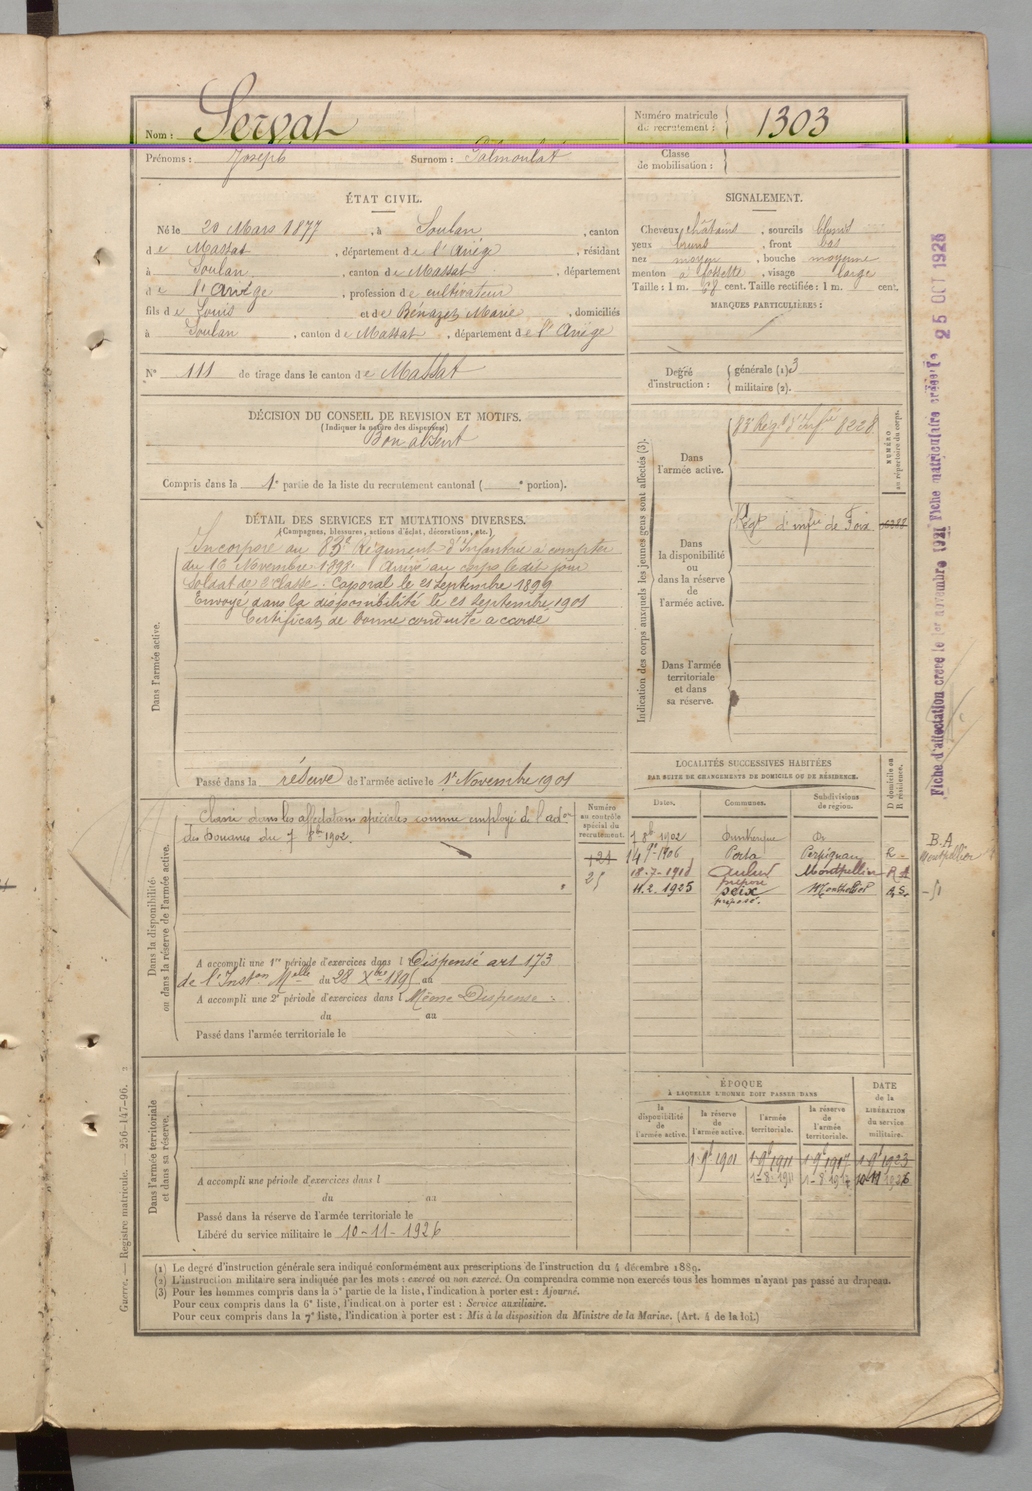 Nom : Servat
Numéro matricule du recrutement : 1303
Prénoms : Joseph Surnom : Palmoulat
Classe de mobilisation :
ÉTAT CIVIL.
Né le 20 Mars 1877, à Soulan, canton
de Massat, département de l'Ariége, résidant
à Soulan, canton de Massat, département
de l'Ariége, profession de cultivateur
fils de Louis et de Bénazet Marie, domiciliés
à Soulan, canton de Massat, département de l'Ariége
N° 111 de tirage dans le canton de Massat
SIGNALEMENT.
Cheveux châtains, sourcils blonds
yeux bruns, front bas
nez moyen, bouche moyenne
menton à fossette, visage large
Taille : 1 m. 68 cent. Taille rectifiée : 1 m. cent.
MARQUES PARTICULIÈRES :
Degré d'instruction : générale (1) 3
militaire (2).
DÉCISION DU CONSEIL DE REVISION ET MOTIFS.
(Indiquer la nature des dispenses)
Bon absent
Compris dans la 1e partie de la liste du recrutement cantonal ( e portion).
DÉTAIL DES SERVICES ET MUTATIONS DIVERSES.
(Campagnes, blessures, actions d'éclat, décorations, etc.)
Dans l'armée active.
Incorporé au 83e Régiment d'Infanterie à compter
du 16 Novembre 1898. Arrivé au corps le dit jour
Soldat de 2e classe. Caporal le 21 Septembre 1899
Envoyé dans la disponibilité le 21 Septembre 1901
Certificat de bonne conduite accordé
Passé dans la réserve de l'armée active le 1r Novembre 1901
Indication des corps auxquels les jeunes gens sont affectés (3).
NUMÉRO au répertoire du corps.
Dans l'armée active.
83e Régt d'Infie 8228
Dans la disponibilité ou dans la réserve de l'armée active.
Régt d'infie de Foix
Dans l'armée territoriale et dans sa réserve.
Dans la disponibilité ou dans la réserve de l'armée active.
Classé dans les affectations spéciales comme employé de l'adon
des Douanes du 7 8bre 1902
Numéro au contrôle spécial du recrutement.
121
25
A accompli une 1re période d'exercices dans l Dispensé art 173
de l'Inston Melle du 28 Xbre 1895 au
A accompli une 2e période d'exercices dans l Même Dispense
du au
Passé dans l'armée territoriale le
LOCALITÉS SUCCESSIVES HABITÉES
PAR SUITE DE CHANGEMENTS DE DOMICILE OU DE RÉSIDENCE.
Dates. Communes. Subdivisions de région. D domicile ou R résidence.
7 8b 1902 Dunkerque
14 9e 1906 Porta Perpignan R
18-7-1910 Aulus Montpellier R
préposé
11.2.1925 Seix Montpellier
préposé.
B.A
Montpellier
Fiche d'affectation créée le 1er novembre 1921 Fiche matriculaire créée le 25 OCT 1925
Dans l'armée territoriale et dans sa réserve.
A accompli une période d'exercices dans l
du au
Passé dans la réserve de l'armée territoriale le
Libéré du service militaire le 10-11-1926
ÉPOQUE
À LAQUELLE L'HOMME DOIT PASSER DANS
la disponibilité de l'armée active. la réserve de l'armée active. l'armée territoriale. la réserve de l'armée territoriale. DATE de la LIBÉRATION du service militaire.
1-9b 1901 1-9b 1911 1-9b 1917 1-9b 1923
1-8-1911 1-8-1917 10-11 1926
(1) Le degré d'instruction générale sera indiqué conformément aux prescriptions de l'instruction du 4 décembre 1889.
(2) L'instruction militaire sera indiquée par les mots : exercé ou non exercé. On comprendra comme non exercés tous les hommes n'ayant pas passé au drapeau.
(3) Pour les hommes compris dans la 5e partie de la liste, l'indication à porter est : Ajourné.
Pour ceux compris dans la 6e liste, l'indication à porter est : Service auxiliaire.
Pour ceux compris dans la 7e liste, l'indication à porter est : Mis à la disposition du Ministre de la Marine. (Art. 4 de la loi.)
Guerre. — Registre matricule. — 256-147-96. 2